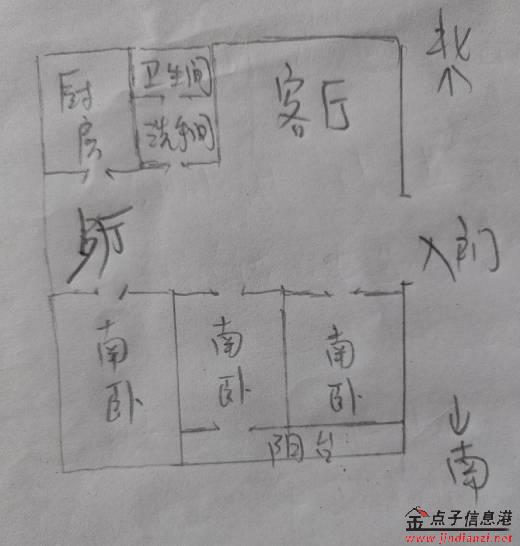 北
厨房
卫生间
洗手间
客厅
入门
南卧
南卧
南卧
阳台
南
金点子信息港
www.jindianzi.net